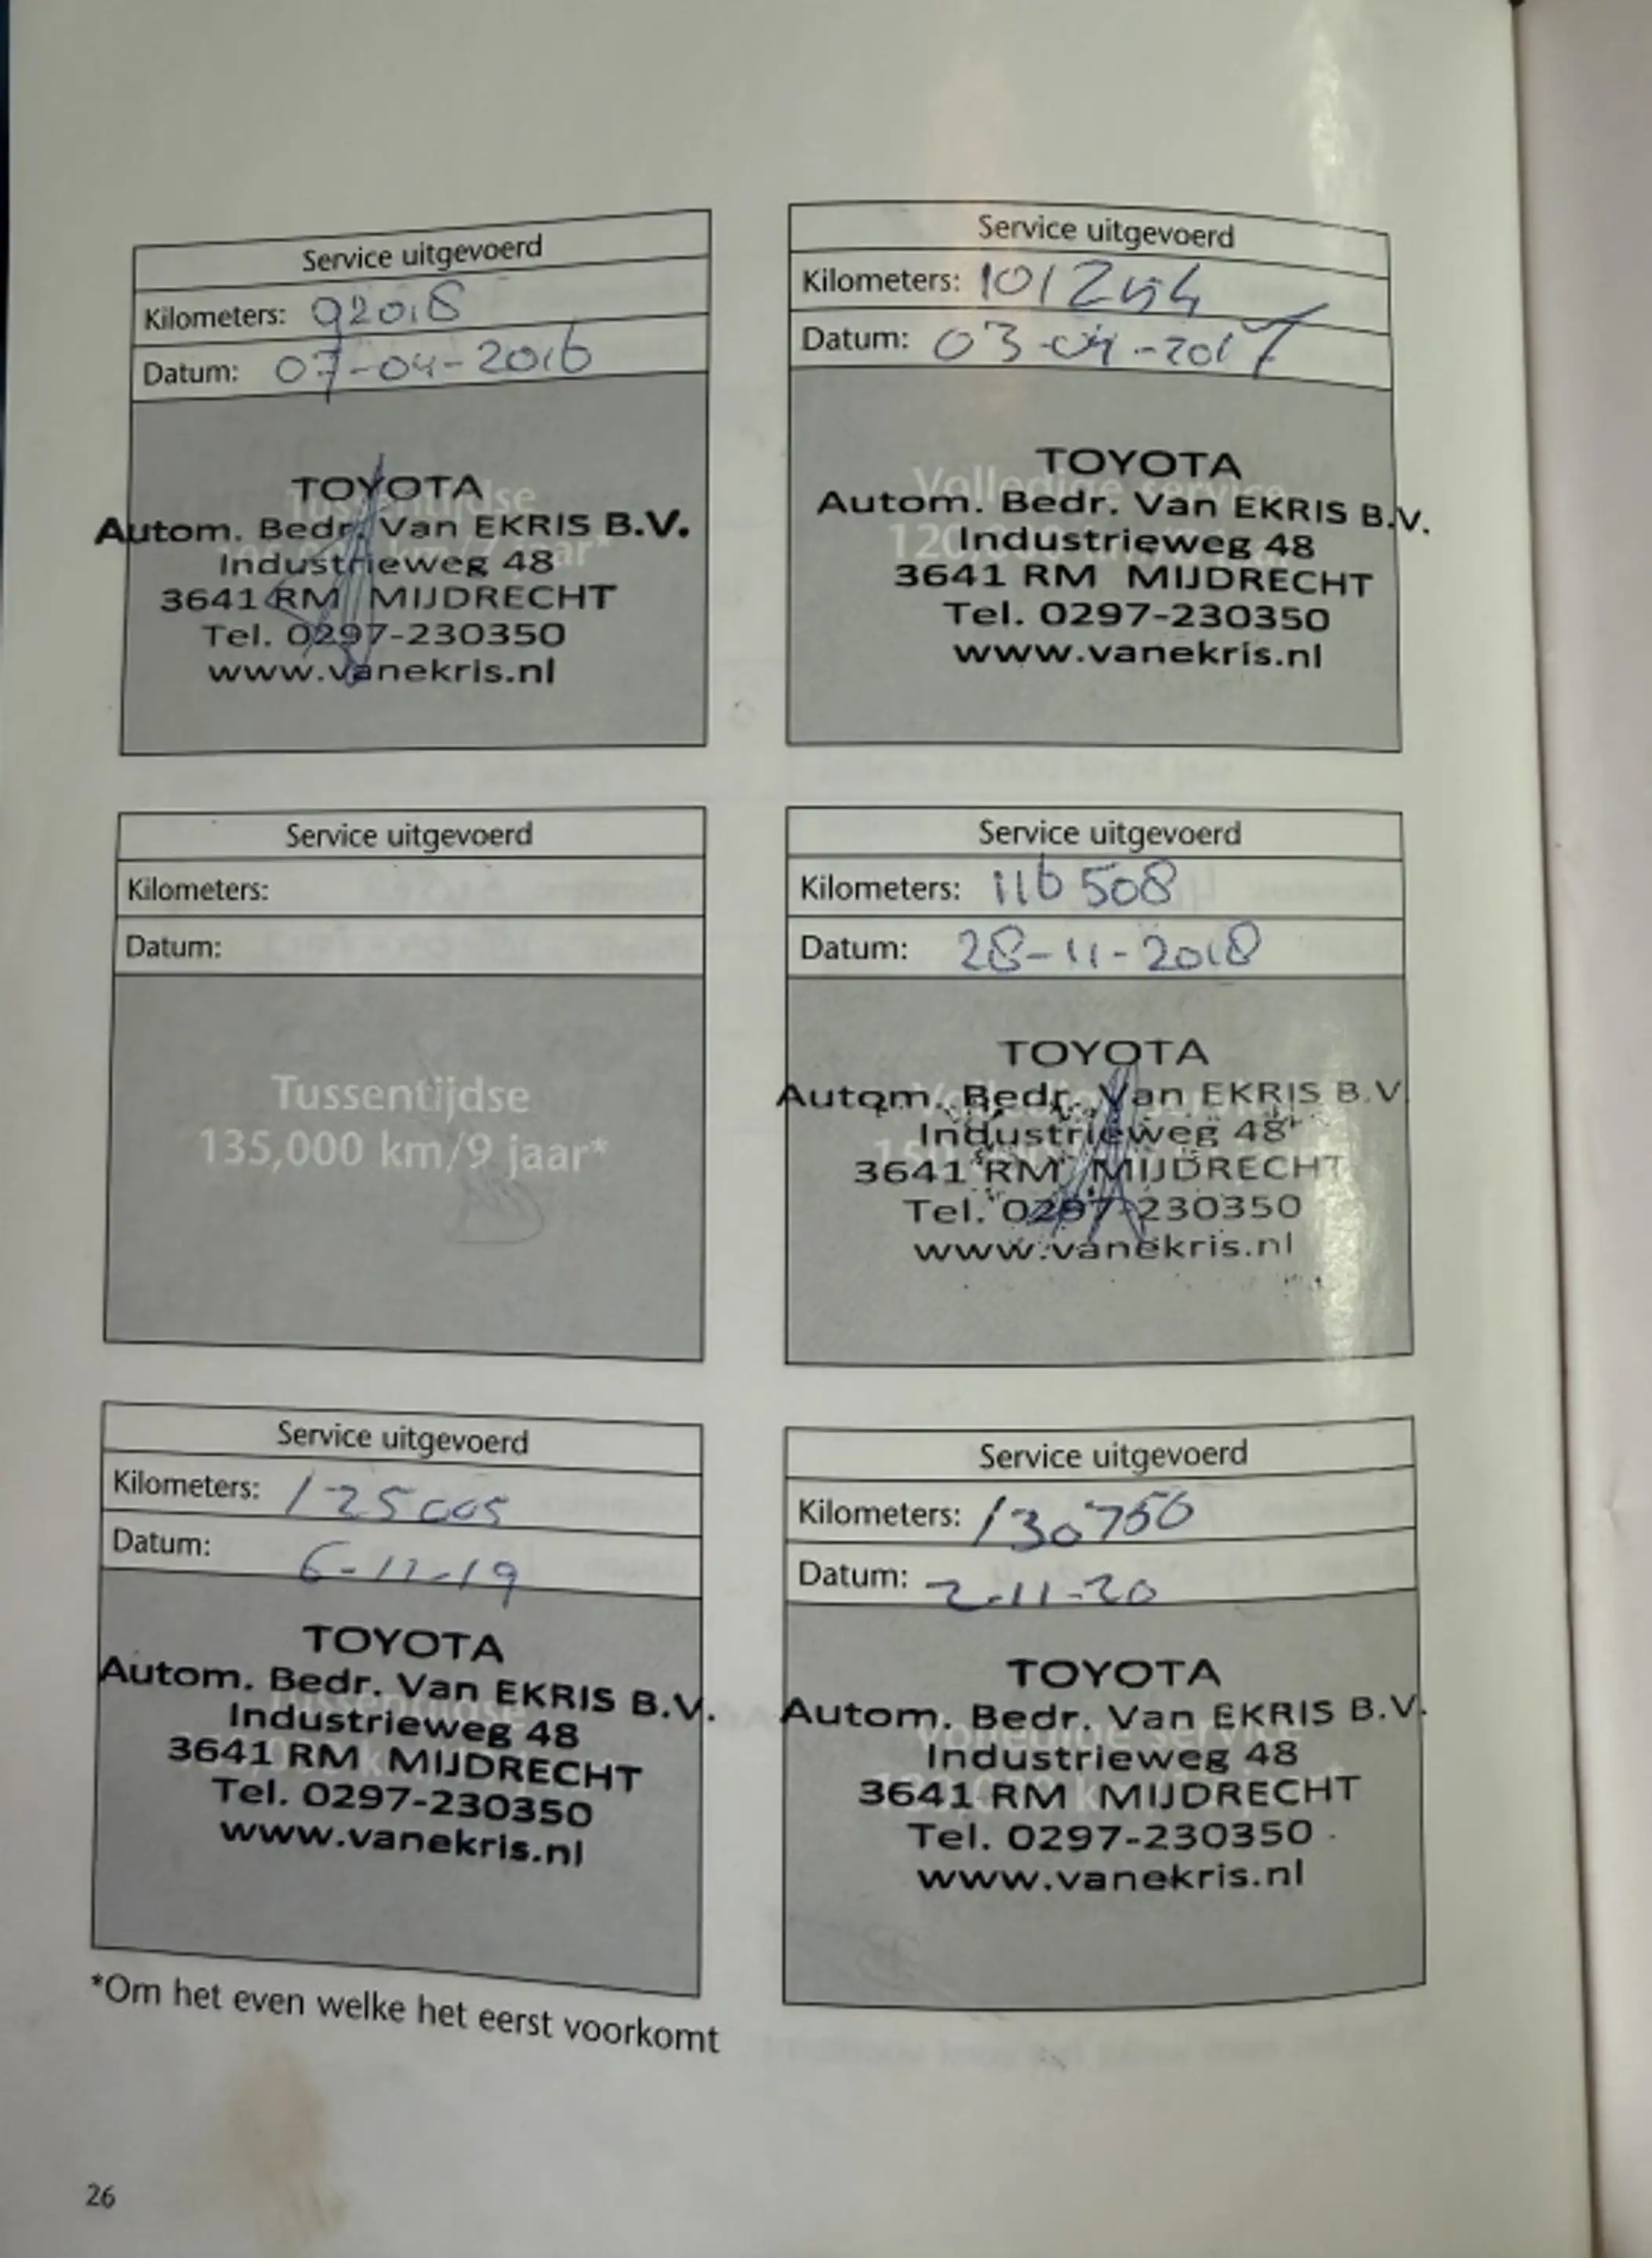 Service uitgevoerd
Kilometers: 92018
Datum: 07-04-2016
TOYOTA
Tussentijdse
Autom. Bedr. Van EKRIS B.V.
km/7 jaar*
Industrieweg 48
3641 RM MIJDRECHT
Tel. 0297-230350
www.vanekris.nl
Service uitgevoerd
Kilometers: 101254
Datum: 03-04-2017
TOYOTA
Volledige service
Autom. Bedr. Van EKRIS B.V.
Industrieweg 48
3641 RM MIJDRECHT
Tel. 0297-230350
www.vanekris.nl
Service uitgevoerd
Kilometers:
Datum:
Tussentijdse
135,000 km/9 jaar*
Service uitgevoerd
Kilometers: 116508
Datum: 28-11-2018
TOYOTA
Autom. Bedr. Van EKRIS B.V.
Industrieweg 48
3641 RM MIJDRECHT
Tel. 0297-230350
www.vanekris.nl
Service uitgevoerd
Kilometers: 125005
Datum: 6-11-19
TOYOTA
Autom. Bedr. Van EKRIS B.V.
Tussentijdse
Industrieweg 48
3641 RM MIJDRECHT
Tel. 0297-230350
www.vanekris.nl
Service uitgevoerd
Kilometers: 130750
Datum: 2-11-20
TOYOTA
Autom. Bedr. Van EKRIS B.V.
Volledige service
Industrieweg 48
3641 RM MIJDRECHT
Tel. 0297-230350
www.vanekris.nl
*Om het even welke het eerst voorkomt
26